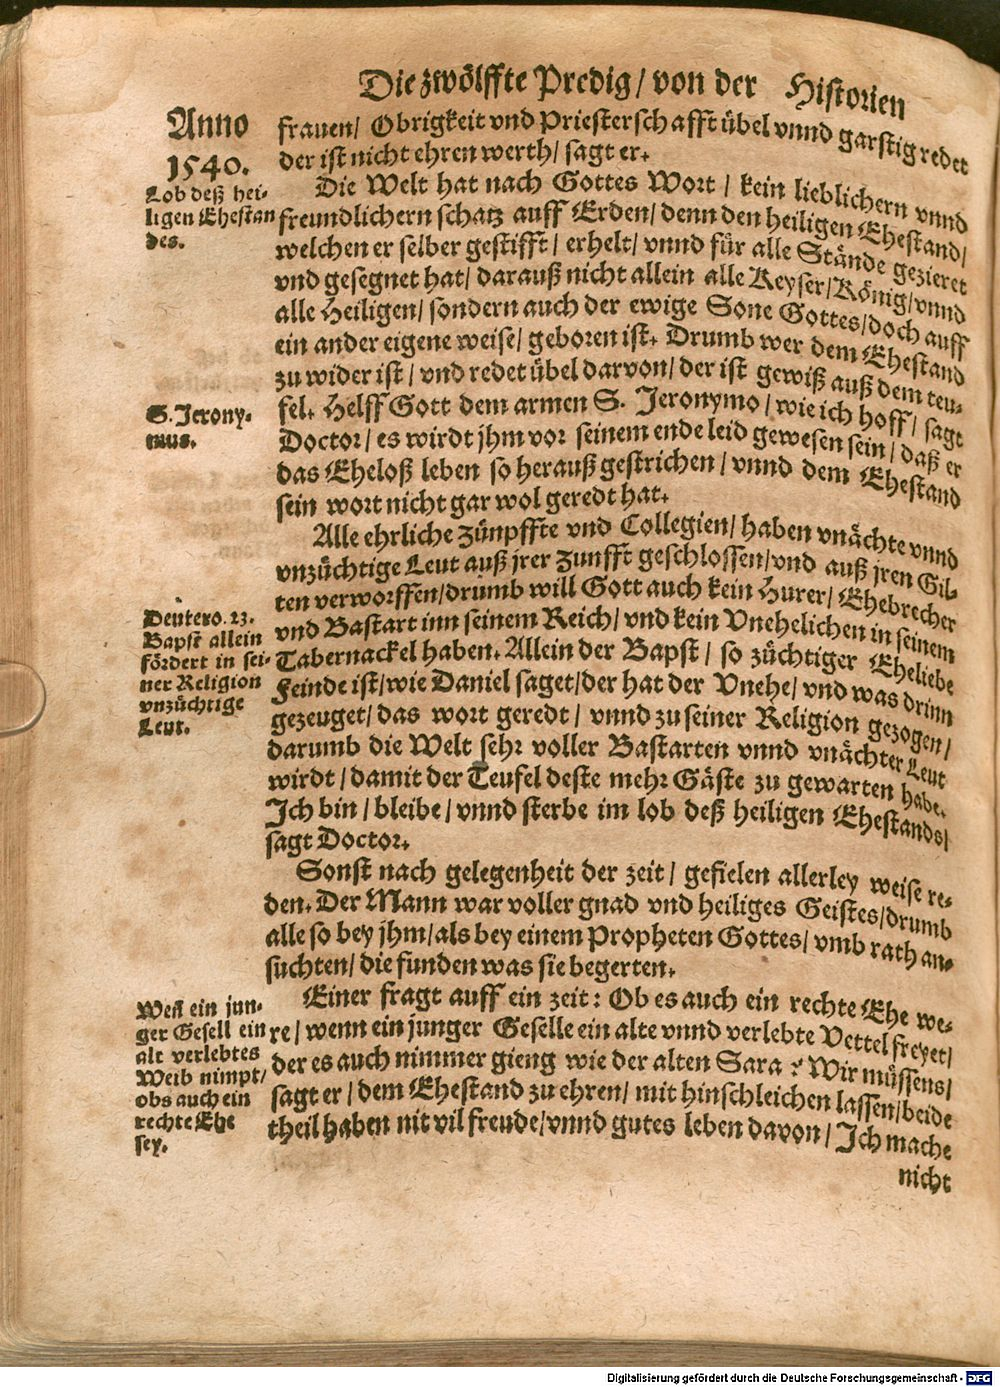 Die zwölffte Predig/ von der Historien
Anno
1540.
frauen/ Obrigkeit vnd Priesterschafft übel vnnd garstig redet
der ist nicht ehren werth/ sagt er.
Lob deß hei-
ligen Ehestan
des.
Die Welt hat nach Gottes Wort/ kein lieblichern vnnd
freundlichern schatz auff Erden/ denn den heiligen Ehestand/
welchen er selber gestifft/ erhelt/ vnnd für alle Stände gezieret
vnd gesegnet hat/ darauß nicht allein alle Keyser/ König/ vnnd
alle Heiligen/ sondern auch der ewige Sone Gottes/ doch auff
ein ander eigene weise/ geboren ist. Drumb wer dem Ehestand
zu wider ist/ vnd redet übel darvon/ der ist gewiß auß dem teu-
S. Jerony-
mus.
fel. Helff Gott dem armen S. Jeronymo/ wie ich hoff/ sagt
Doctor/ es wirdt jhm vor seinem ende leid gewesen sein/ daß er
das Eheloß leben so herauß gestrichen/ vnnd dem Ehestand
sein wort nicht gar wol geredt hat.
Alle ehrliche zünpffte vnd Collegien/ haben vnächte vnnd
vnzüchtige Leut auß jrer zunfft geschlossen/ vnd auß jren Gil-
ten verworffen/ drumb will Gott auch kein Hurer/ Ehebrecher
Deutero. 23.
Bapst allein
fördert in sei-
ner Religion
vnzüchtige
Leut.
vnd Bastart inn seinem Reich/ vnd kein Vnehelichen in seinem
Tabernackel haben. Allein der Bapst/ so züchtiger Eheliebe
Feinde ist/ wie Daniel saget/ der hat der Vnehe/ vnd was drinn
gezeuget/ das wort geredt/ vnnd zu seiner Religion gezogen/
darumb die Welt sehr voller Bastarten vnnd vnächter Leut
wirdt/ damit der Teufel deste mehr Gäste zu gewarten habe.
Ich bin/ bleibe/ vnnd sterbe im lob deß heiligen Ehestands/
sagt Doctor.
Sonst nach gelegenheit der zeit/ gefielen allerley weise re-
den. Der Mann war voller gnad vnd heiliges Geistes/ drumb
alle so bey jhm/ als bey einem Propheten Gottes/ vmb rath an-
suchten/ die funden was sie begerten.
Weil ein jun-
ger Gesell ein
alt verlebtes
Weib nimpt/
obs auch ein
rechte Ehe
sey.
Einer fragt auff ein zeit: Ob es auch ein rechte Ehe we-
re/ wenn ein junger Geselle ein alte vnnd verlebte Vettel freyet/
der es auch nimmer gieng wie der alten Sara? Wir müssens/
sagt er/ dem Ehestand zu ehren/ mit hinschleichen lassen/ beide
theil haben nit vil freude/ vnnd gutes leben davon/ Ich mache
nicht
Digitalisierung gefördert durch die Deutsche Forschungsgemeinschaft - DFG